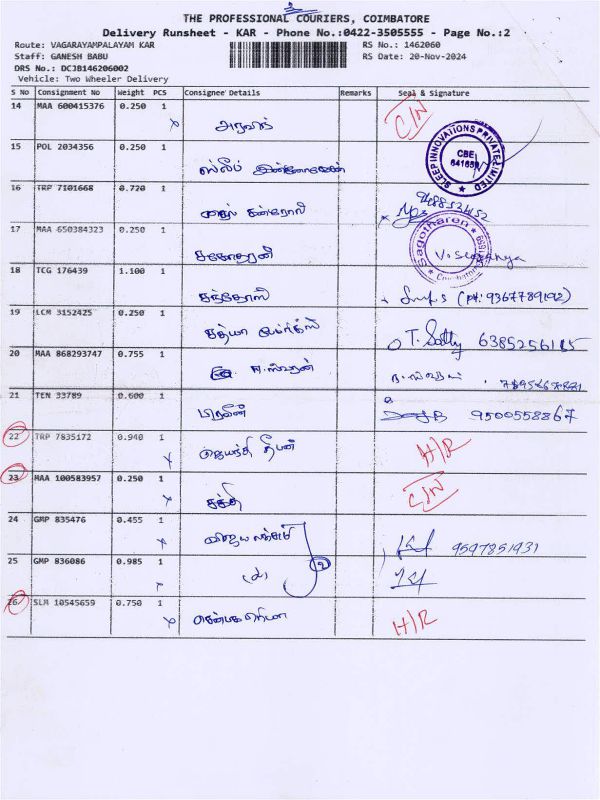 THE PROFESSIONAL COURIERS, COIMBATORE
Delivery Runsheet - KAR - Phone No.:0422-3505555 - Page No.:2
Route: VAGARAYAMPALAYAM KAR RS No.: 1462060
Staff: GANESH BABU RS Date: 20-Nov-2024
DRS No.: DCJB146206002
Vehicle: Two Wheeler Delivery
S No Consignment No Weight PCS Consignee Details Remarks Seal & Signature
14 MAA 600415376 0.250 1 அரவிந்த் C/N
15 POL 2034356 0.250 1 ஸ்லீப் SLEEP INNOVATIONS PRIVATE LIMITED CBE
16 TRP 7101668 0.720 1 9488524152
17 MAA 650384323 0.250 1 சகோதரன் Sagotharen
18 TCG 176439 1.100 1 சந்தோஸ் (PH: 9367789192)
19 LCM 3152425 0.250 1 சத்யா T. Sathy
20 MAA 868293747 0.755 1
21 TEN 33789 0.600 1 பிரவீன் 9500558867
22 TRP 7835172 0.940 1 ஜெயந்தி தீபன் H/R
23 MAA 100583957 0.250 1 சக்தி C/N
24 GMP 835476 0.455 1 விஜய லட்சுமி 9597851931
25 GMP 836086 0.985 1
26 SLM 10545659 0.750 1 செண்பக பிரியா H/R